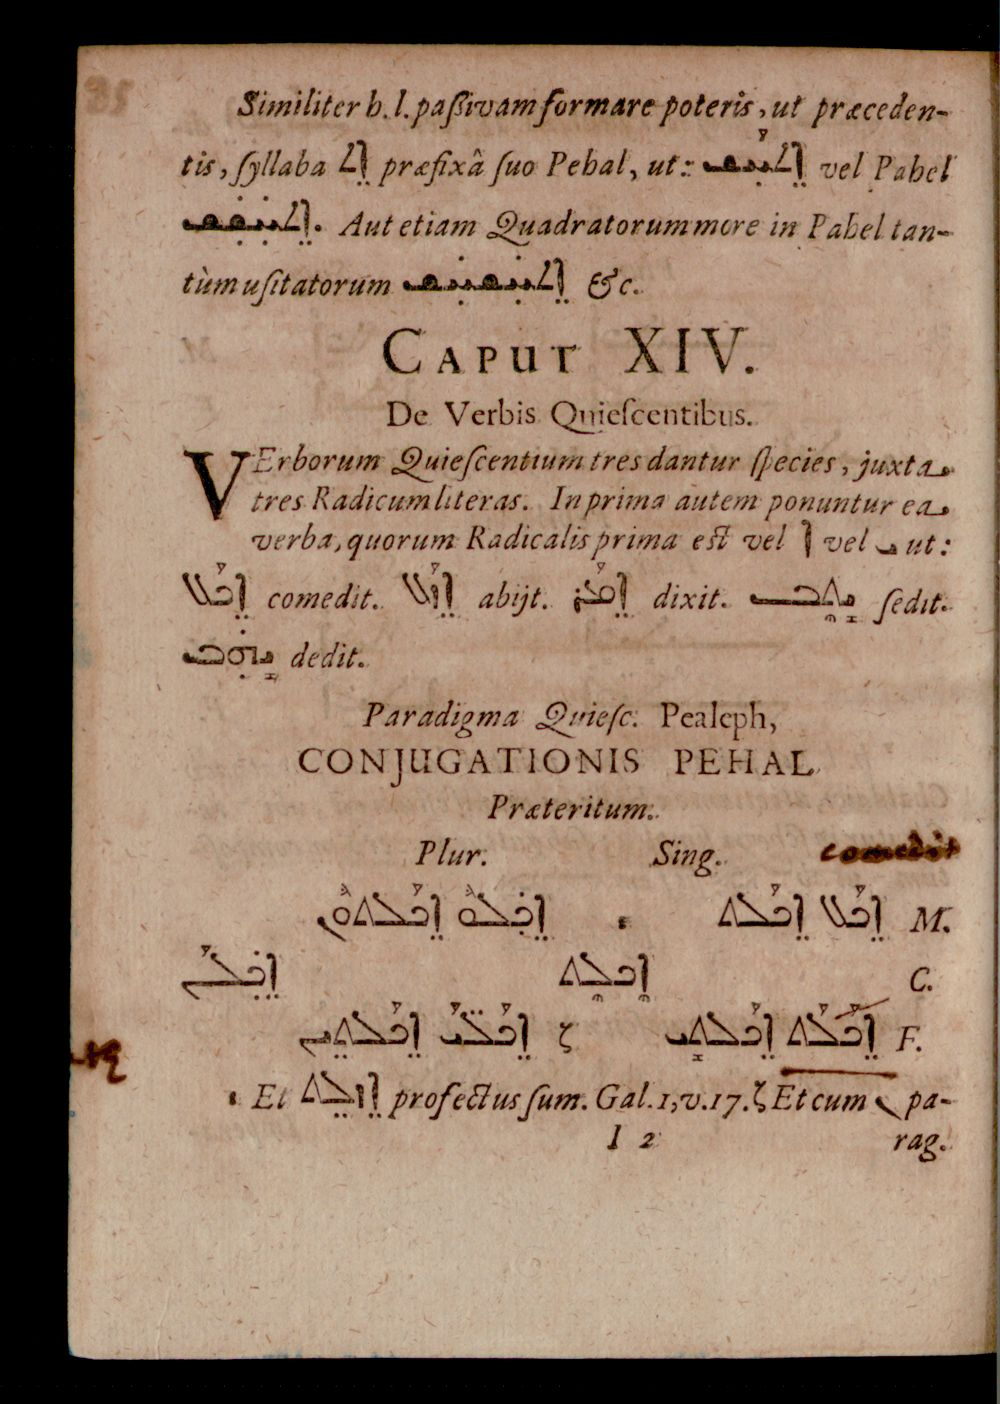 Similiter h. l. paßivam formare poteris, ut præceden-
tis, ſyllaba ܐܬ præfixâ ſuo Pehal, ut: vel Pahel
Aut etiam Quadratorum more in Pahel tan-
tùm uſitatorum &c.
CAPUT XIV.
De Verbis Quieſcentibus.
VErborum Quieſcentium tres dantur ſpecies, juxta
tres Radicum literas. In prima autem ponuntur ea
verba, quorum Radicalis prima est vel ܐ vel ܝ ut:
ܐܟܠ comedit. ܐܙܠ abijt. ܐܡܪ dixit. ܝܬܒ ſedit.
ܝܗܒ dedit.
Paradigma Quieſc. Pealeph,
CONJUGATIONIS PEHAL
Præteritum.
Plur. Sing. comedit
ܐܟܠܬܘܢ ܐܟܠܘ ܐܟܠܬ ܐܟܠ M.
ܐܟܠܢ ܐܟܠܬ C.
ܐܟܠܬܝܢ ܐܟܠܝ ζ ܐܟܠܬܝ ܐܟܠܬ F.
Et ܐܙܠܬ profectus ſum. Gal. 1, v. 17. ζ Et cum ܢ pa-
I 2 rag.